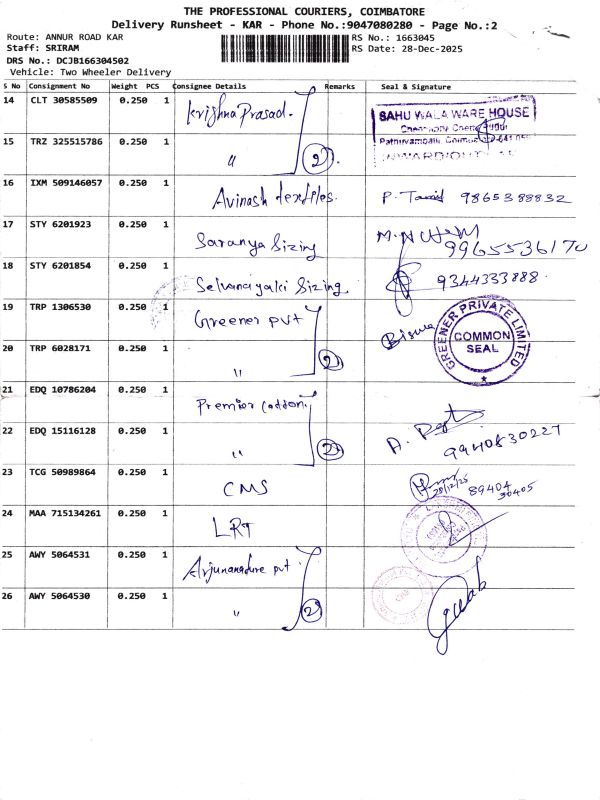 THE PROFESSIONAL COURIERS, COIMBATORE
Delivery Runsheet - KAR - Phone No.:9047080280 - Page No.:2
Route: ANNUR ROAD KAR RS No.: 1663045
Staff: SRIRAM RS Date: 28-Dec-2025
DRS No.: DCJB166304502
Vehicle: Two Wheeler Delivery
S No Consignment No Weight PCS Consignee Details Remarks Seal & Signature
14 CLT 30585509 0.250 1 Krishna Prasad. SAHU WALA WARE HOUSE
15 TRZ 325515786 0.250 1 " 2
16 IXM 509146057 0.250 1 Avinash textiles. P. 9865388832
17 STY 6201923 0.250 1 Saranya Sizing 9965536170
18 STY 6201854 0.250 1 Selvanayaki Sizing 9344333888
19 TRP 1306530 0.250 1 Greener pvt GREENER PRIVATE LIMITED COMMON SEAL
20 TRP 6028171 0.250 1 " 2
21 EDQ 10786204 0.250 1 Premior
22 EDQ 15116128 0.250 1 " 2 9940830227
23 TCG 50989864 0.250 1 CMS 28/12/25 89404 30405
24 MAA 715134261 0.250 1 LRT
25 AWY 5064531 0.250 1 pvt
26 AWY 5064530 0.250 1 " 2